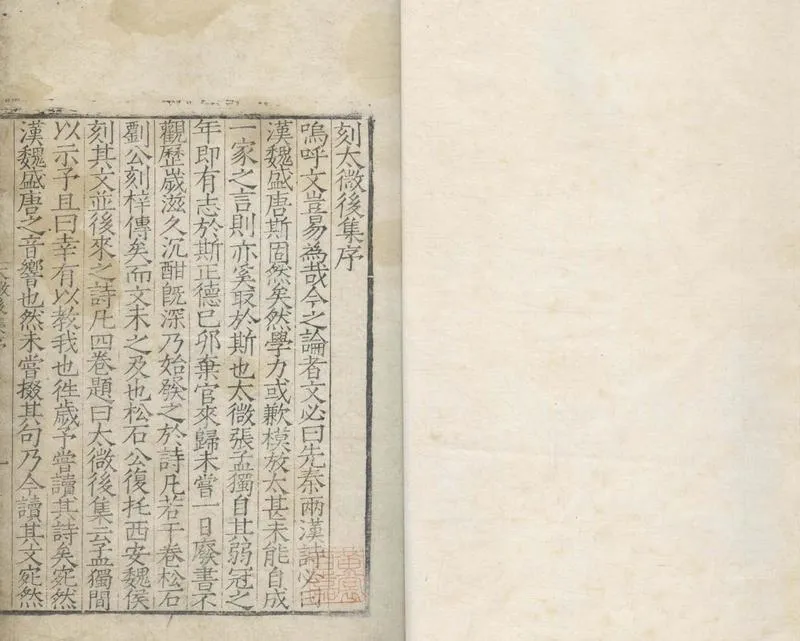 刻太微後集序
嗚呼文豈易為哉今之論者文必曰先秦兩漢詩必曰
漢魏盛唐斯固然矣然學力或歉模放太甚未能自成
一家之言則亦奚取於斯也太微張孟獨自其弱冠之
年即有志於斯正德己卯棄官來歸未嘗一日廢書不
觀歷歲滋久沉酣既深乃始發之於詩凡若干卷松石
劉公刻梓傳矣而文未之及也松石公復托西安魏侯
刻其文並後來之詩凡四卷題曰太微後集云孟獨間
以示予且曰幸有以教我也徃歲予嘗讀其詩矣宛然
漢魏盛唐之音響也然未嘗掇其句乃今讀其文宛然